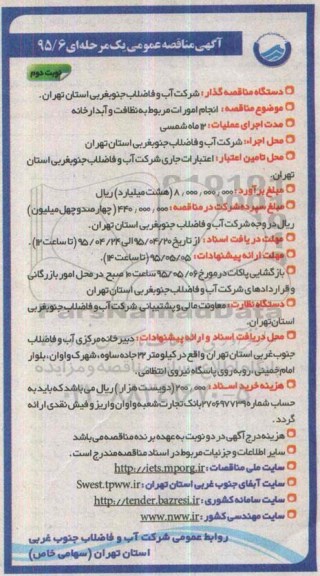 آگهی مناقصه عمومی یک مرحله‌ای ۹۵/۶
نوبت دوم
دستگاه مناقصه گذار: شرکت آب و فاضلاب جنوبغربی استان تهران.
موضوع مناقصه: انجام امورات مربوط به نظافت و آبدارخانه
مدت اجرای عملیات: ۱۲ ماه شمسی
محل اجراء: شرکت آب و فاضلاب جنوبغربی استان تهران
محل تامین اعتبار: اعتبارات جاری شرکت آب و فاضلاب جنوبغربی استان
تهران.
مبلغ برآورد: ۸,۰۰۰,۰۰۰,۰۰۰ (هشت میلیارد) ریال
مبلغ سپرده شرکت در مناقصه: ۴۴۰,۰۰۰,۰۰۰ (چهارصد و چهل میلیون)
ریال در وجه شرکت آب و فاضلاب جنوبغربی استان تهران
مهلت دریافت اسناد: از تاریخ ۹۵/۰۴/۲۰ الی ۹۵/۰۴/۲۴ (تا ساعت ۱۴).
مهلت ارائه پیشنهادات: ۹۵/۰۵/۰۵ (تا ساعت ۱۴).
بازگشایی پاکات: در مورخ ۹۵/۰۵/۰۶ ساعت ۱۰ صبح در محل امور بازرگانی
و قراردادهای شرکت آب و فاضلاب جنوبغربی استان تهران
دستگاه نظارت: معاونت مالی و پشتیبانی شرکت آب و فاضلاب جنوبغربی
استان تهران.
محل دریافت اسناد و ارائه پیشنهادات: دبیرخانه مرکزی آب و فاضلاب
جنوب غربی استان تهران واقع در کیلومتر ۲۳ جاده ساوه، شهرک واوان، بلوار
امام خمینی، روبه روی پاسگاه نیروی انتظامی.
هزینه خرید اسناد: ۲۰۰,۰۰۰ (دویست هزار) ریال می باشد که باید به
حساب شماره بانک تجارت شعبه واوان واریز و فیش نقدی ارائه
گردد.
هزینه درج آگهی در دو نوبت به عهده برنده مناقصه می باشد
سایر اطلاعات و جزئیات مربوط در اسناد مناقصه مندرج است.
سایت ملی مناقصات: http://iets.mporg.ir
سایت آبفای جنوب غربی استان تهران: Swest.tpww.ir
سایت سامانه کشوری: http://tender.bazresi.ir
سایت مهندسی کشور: www.nww.ir
روابط عمومی شرکت آب و فاضلاب جنوب غربی
استان تهران (سهامی خاص)